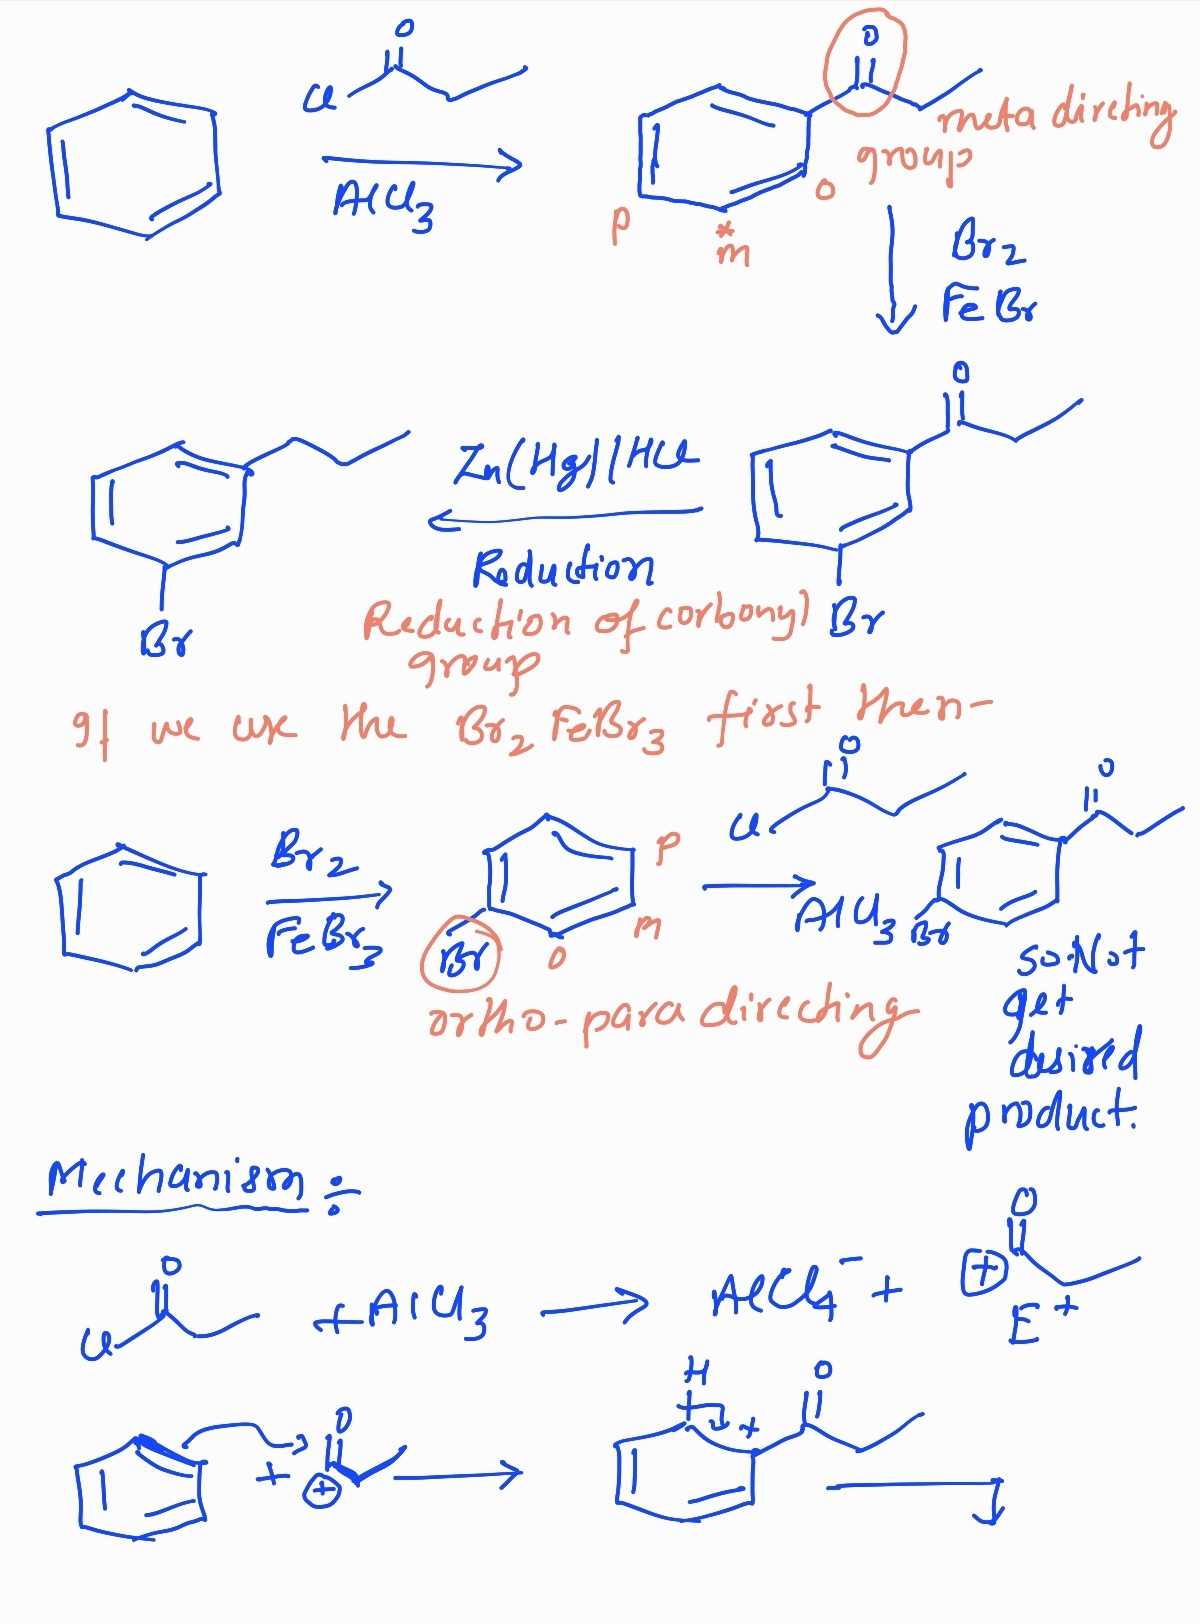 O
Cl
AlCl3
O
meta directing
group
o
p
*
m
Br2
FeBr
O
Zn(Hg)/HCl
Reduction
Br
Br
Reduction of corbonyl
group
If we use the Br2 FeBr3 first then-
O
Cl
O
Br2
FeBr3
p
m
o
Br
AlCl3
Br
ortho-para directing
so Not
get
desired
product.
Mechanism ÷
O
Cl
+ AlCl3
AlCl4- +
O
+
E+
+
O
+
H
+
O